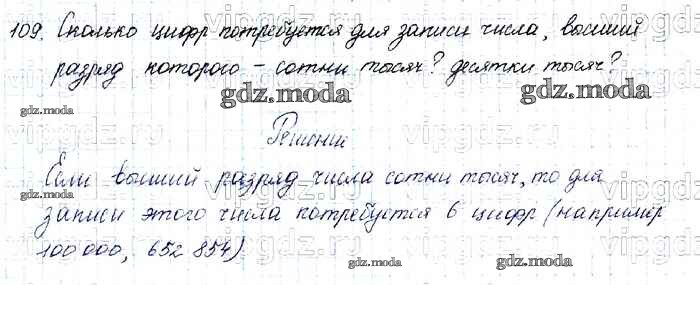 109. Сколько цифр потребуется для записи числа, высший
разряд которого - сотни тысяч? десятки тысяч?
gdz.moda
gdz.moda
gdz.moda
Решение
vipgdz.ru
Если высший разряд числа сотни тысяч, то для
gdz.moda
записи этого числа потребуется 6 цифр (например
100 000, 652 854)
gdz.moda
gdz.moda